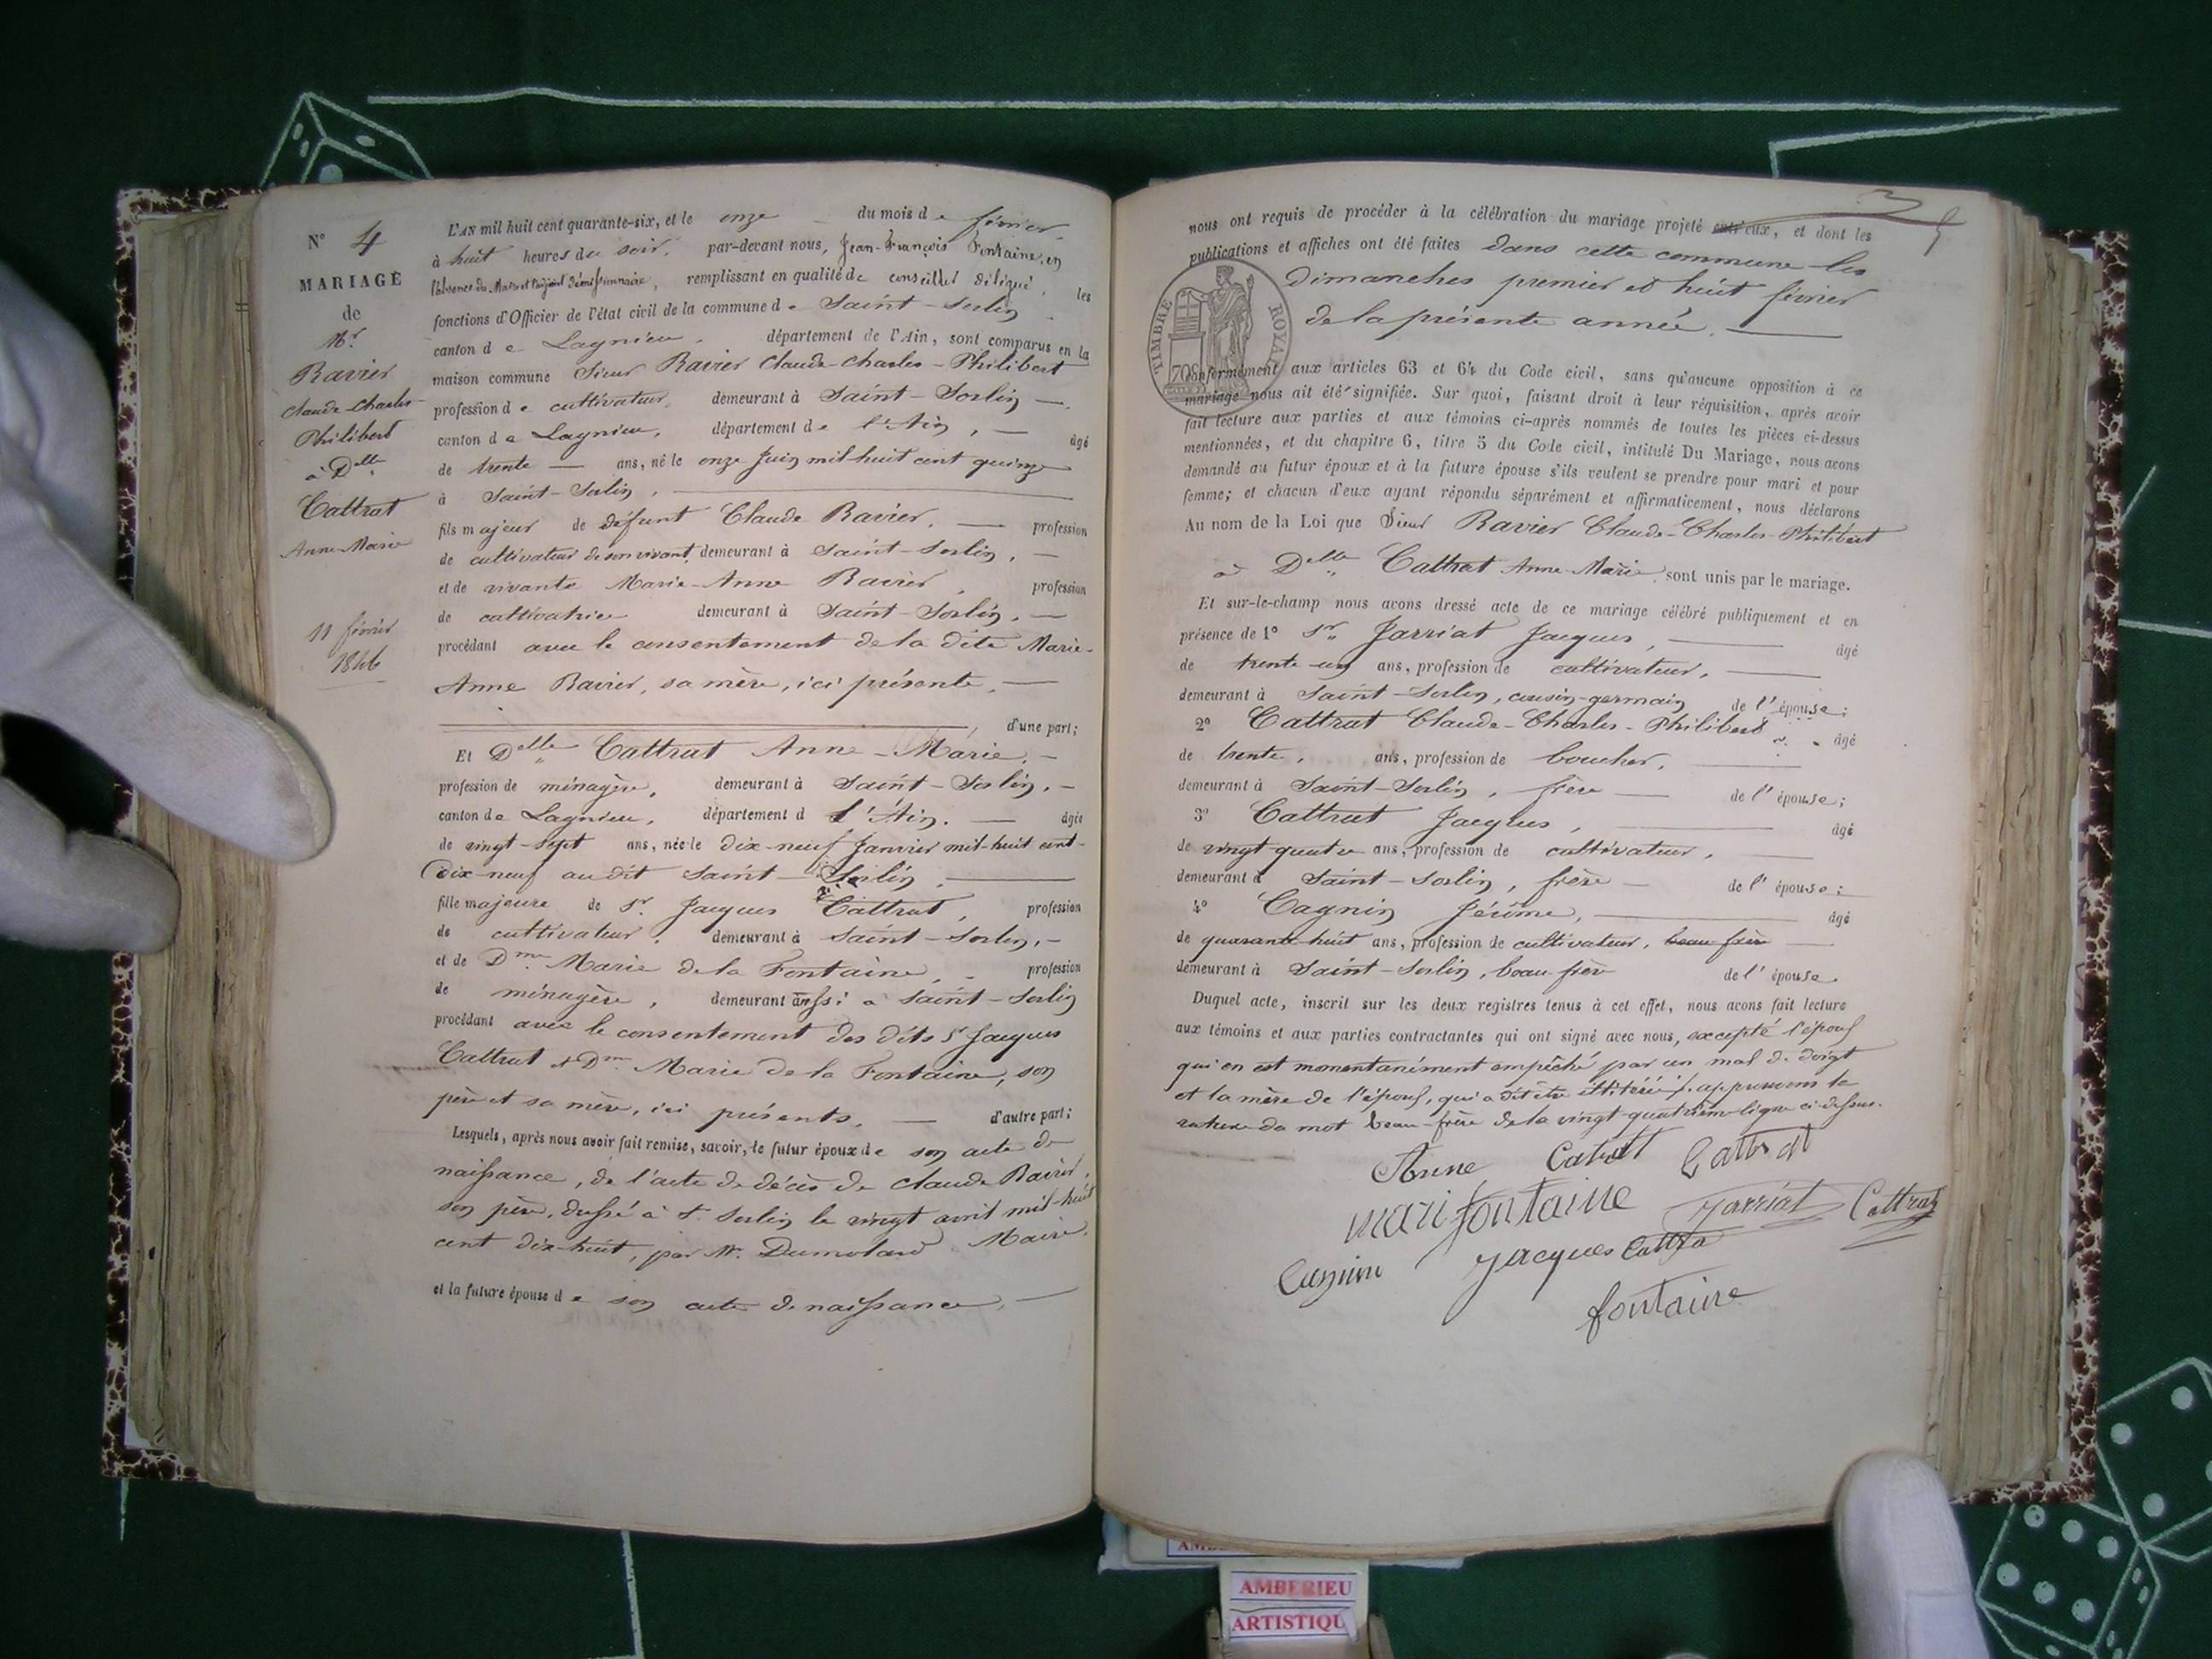 N° 4
MARIAGE
de
Mr.
Ravier
Claude-Charles-
Philibert
à Delle
Cattrat
Anne-Marie
11 février
1846
L'AN mil huit cent quarante-six, et le onze du mois de février
à huit heures du soir, par-devant nous, Jean-François Fontaine, en
l'absence du Maire et l'adjoint démissionnaire, remplissant en qualité de conseiller délégué, les
fonctions d'Officier de l'état civil de la commune de Saint-Sorlin
canton de Lagnieu, département de l'Ain, sont comparus en la
maison commune Sieur Ravier Claude-Charles-Philibert
profession de cultivateur, demeurant à Saint-Sorlin
canton de Lagnieu, département de l'Ain, âgé
de trente ans, né le onze Juin mil-huit cent quinze
à Saint-Sorlin,
fils majeur de défunt Claude Ravier, profession
de cultivateur de son vivant, demeurant à Saint-Sorlin,
et de vivante Marie-Anne Ravier, profession
de cultivatrice demeurant à Saint-Sorlin,
procédant avec le consentement de la dite Marie-
Anne Ravier, sa mère, ici présente,
d'une part;
Et Delle Cattrat Anne-Marie,
profession de ménagère, demeurant à Saint-Sorlin,
canton de Lagnieu, département d l'Ain. âgée
de vingt-sept ans, née le dix-neuf Janvier mil-huit cent-
dix-neuf au dit Saint-Sorlin,
fille majeure de Sr. Jacques Cattrat, profession
de cultivateur, demeurant à Saint-Sorlin,
et de Dme Marie de la Fontaine, profession
de ménagère, demeurant aussi à Saint-Sorlin
procédant avec le consentement des dits Sr Jacques
Cattrat et Dme Marie de la Fontaine, son
père et sa mère, ici présents, d'autre part;
Lesquels, après nous avoir fait remise, savoir, le futur époux de son acte de
naissance, de l'acte de décès de Claude Ravier,
son père, dressé à St. Sorlin le vingt avril mil-huit
cent dix-huit, par Mr. Dumolard Maire,
et la future épouse de son acte de naissance,
nous ont requis de procéder à la célébration du mariage projeté entr'eux, et dont les
publications et affiches ont été faites dans cette commune les
dimanches premier et huit février
de la présente année.
TIMBRE ROYAL
70c
conformément aux articles 63 et 64 du Code civil, sans qu'aucune opposition à ce
mariage nous ait été signifiée. Sur quoi, faisant droit à leur réquisition, après avoir
fait lecture aux parties et aux témoins ci-après nommés de toutes les pièces ci-dessus
mentionnées, et du chapitre 6, titre 5 du Code civil, intitulé Du Mariage, nous avons
demandé au futur époux et à la future épouse s'ils veulent se prendre pour mari et pour
femme; et chacun d'eux ayant répondu séparément et affirmativement, nous déclarons
Au nom de la Loi que Sieur Ravier Claude-Charles-Philibert
à Delle Cattrat Anne-Marie, sont unis par le mariage.
Et sur-le-champ nous avons dressé acte de ce mariage célébré publiquement et en
présence de 1° Sr. Jarriat Jacques, âgé
de trente-un ans, profession de cultivateur,
demeurant à Saint-Sorlin, cousin-germain de l'épouse;
2° Cattrat Claude-Charles-Philibert âgé
de trente, ans, profession de boucher,
demeurant à Saint-Sorlin, frère de l'épouse;
3° Cattrat Jacques, âgé
de vingt-quatre ans, profession de cultivateur,
demeurant à Saint-Sorlin, frère de l'épouse;
4° Cagnin Jérôme, âgé
de quarante-huit ans, profession de cultivateur, beau-frère
demeurant à Saint-Sorlin, beau-frère de l'épouse.
Duquel acte, inscrit sur les deux registres tenus à cet effet, nous avons fait lecture
aux témoins et aux parties contractantes qui ont signé avec nous, excepté l'époux
qui en est momentanément empêché par un mal de doigt
et la mère de l'époux, qui a dit être illitérée; approuvons la
rature du mot beau-frère de la vingt-quatrième ligne ci-dessus.
Anne Catrat Cattrat
mari fontaine Jarriat Cattrat
Cagnin Jacques Cattra
fontaine
AMBERIEU
ARTISTIQU